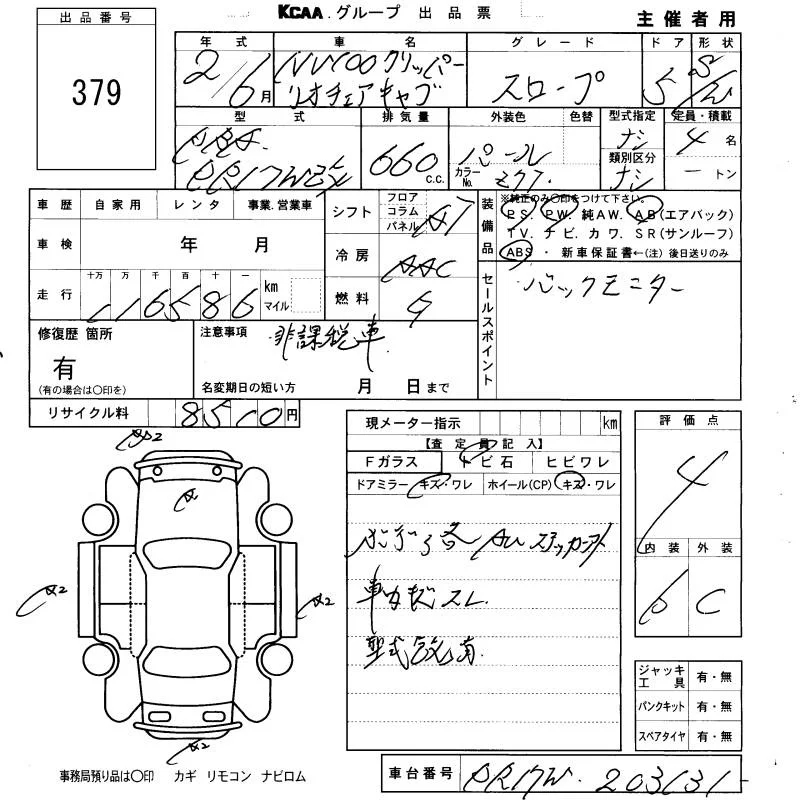 KCAA グループ 出品票
主催者用
出品番号
379
年式 車名 グレード ドア 形状
2/6月 NV100クリッパー スロープ 5 S/W
リオチェアキャブ
型式 排気量 外装色 色替 型式指定 定員・積載
DR17W改 660 c.c. パール ナシ 4名
カラーNo. 類別区分 ナシ ートン
車歴 自家用 レンタ 事業.営業車
シフト フロア コラム パネル AT
装備品 ※純正のみ〇印をつけて下さい。
PS, PW, 純AW, AB(エアバック)
TV. ナビ. カワ. SR(サンルーフ)
ABS・新車保証書←(注)後日送りのみ
車検 年 月
冷房 AAC
走行 十万 万 千 百 十 一
116586 km マイル
燃料 G
セールスポイント
バックモニター
修復歴 箇所
有
(有の場合は〇印を)
注意事項 非課税車
名変期日の短い方 月 日まで
リサイクル料 8510円
現メーター指示 km
【査定員記入】
Fガラス トビ石 ヒビワレ
ドアミラー キズ・ワレ ホイール(CP) キズ・ワレ
車内キズスレ
評価点
4
内装 外装
B C
A2
A
A2
A2
A2
ジャッキ工具 有・無
パンクキット 有・無
スペアタイヤ 有・無
事務局預り品は〇印 カギ リモコン ナビロム
車台番号 DR17W-203131-